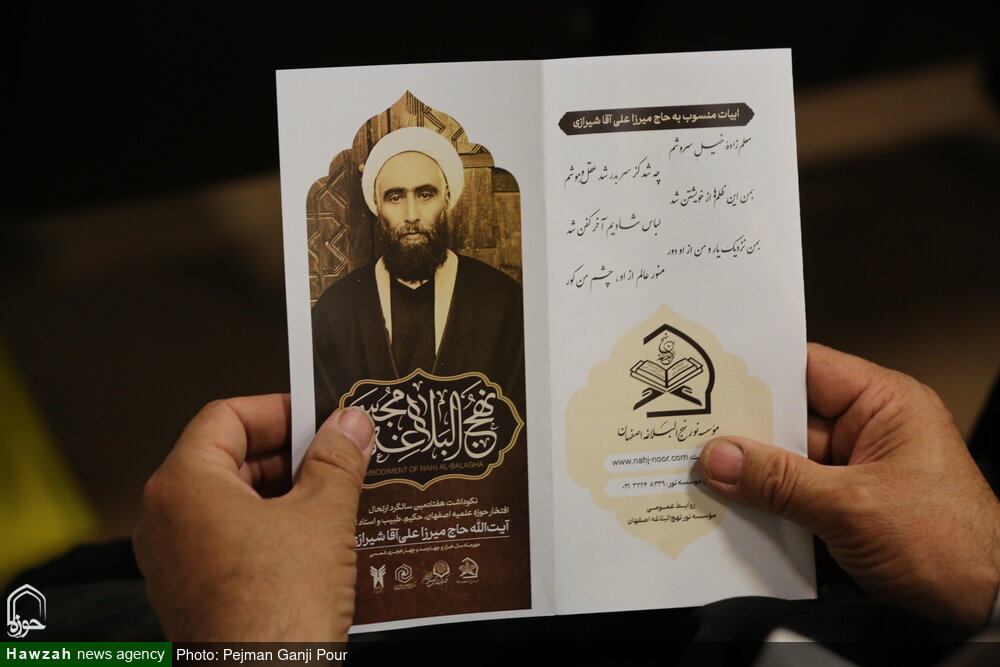 نهج البلاغه مجسم
EMBODIMENT OF NAHJ AL-BALAGHA
نکوداشت هفتادمین سالگرد ارتحال
افتخار حوزه علمیه اصفهان، حکیم، طبیب و استاد
آیت‌الله حاج میرزا علی آقا شیرازی
مهرماه سال هزار و چهارصد و چهار هجری شمسی
ابیات منسوب به حاج میرزا علی آقا شیرازی
معلم زادهٔ خیل سروشم
چه شد کز سر بدر شد عقل و هوشم
بمن این ظلم‌ها از خویشتن شد
لباس شادیم آخر کفن شد
بمن نزدیک یار و من از او دور
منور عالم از او، چشم من کور
مؤسسه نور نهج البلاغه اصفهان
www.nahj-noor.com
موسسه نور: ۸۳۳۹ ۳۲۲۴ ۰۳۱
روابط عمومی
مؤسسه نور نهج‌البلاغه اصفهان
حوزه
Hawzah news agency
Photo: Pejman Ganji Pour